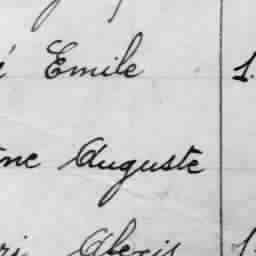 é Emile 1.
ine Auguste
ri Alexis 1.